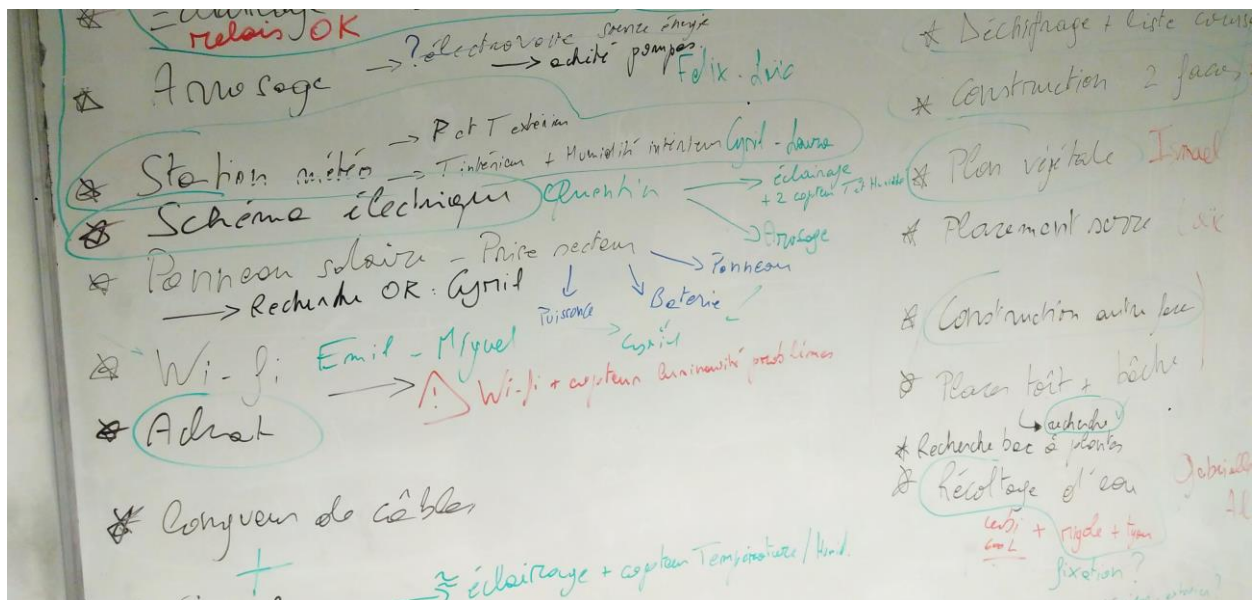 relais OK
Arrosage → ? électrovalve source énergie
→ acheté pompes.
Felix - Loïc
Station météo → P et T extérieur
→ T intérieur + Humidité intérieur Cyril - Laura
Schéma électrique Quentin → éclairage
+ 2 capteur T et Humidité
→ Arrosage
Panneau solaire - Prise secteur → Panneau
→ Recherche OK : Cyril
Puissance
Baterie
Cyril
Wi-fi Emil - Miguel
→ ! Wi-fi + capteur luminosité problèmes
Achat
Longueur de câbles
+
→ éclairage + capteur Température / Humid.
Déchifrage + liste course
Construction 2 faces
Plan végétale Ismael
Placement serre
Construction autre face
Placer toît + bâche
recherche
Recherche bac à plantes
Récoltage d'eau
+ rigole +
fixation ?